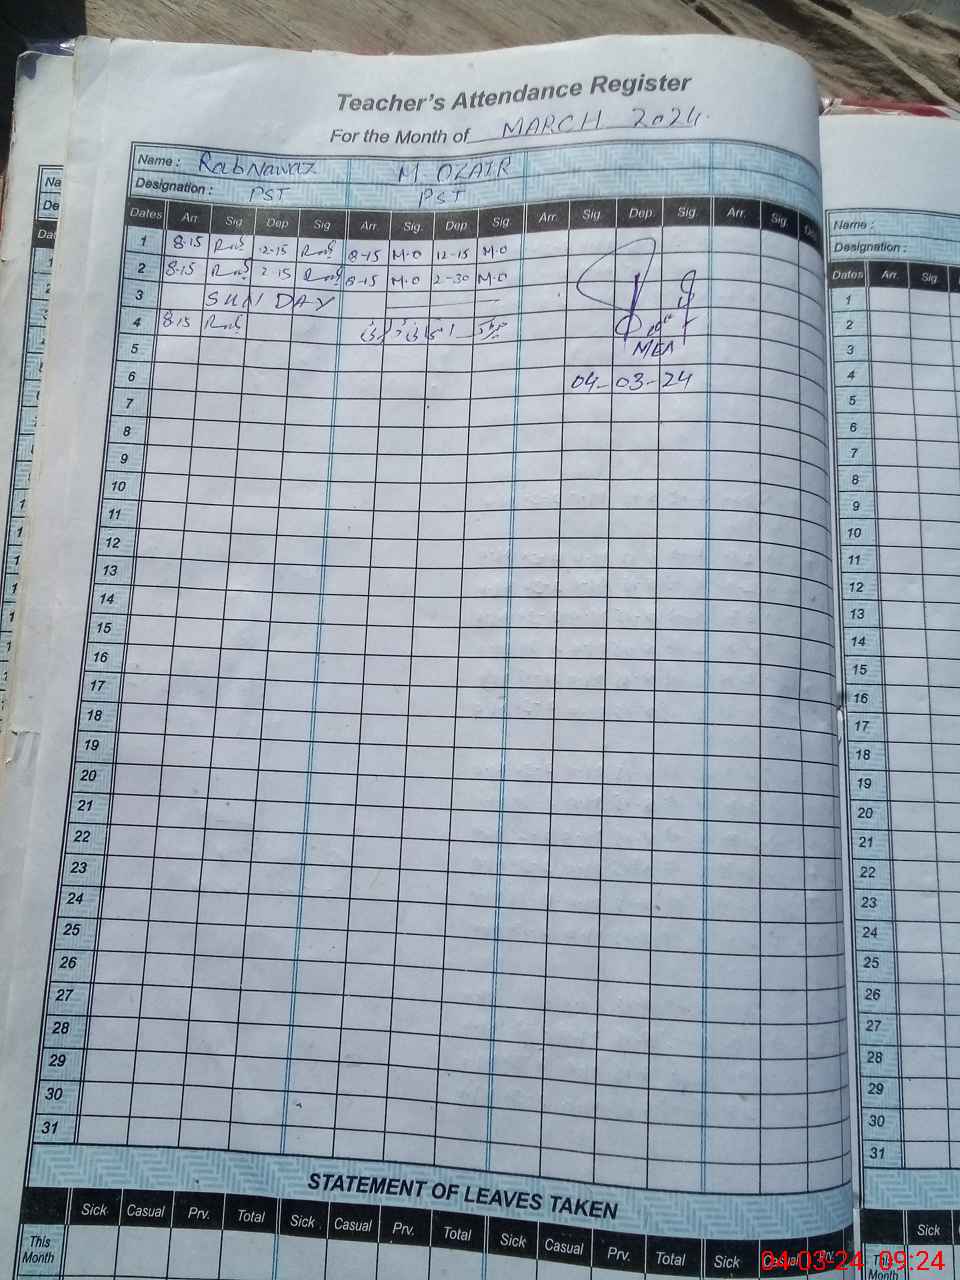 Teacher's Attendance Register
For the Month of MARCH 2024.
Name : RabNawaz M. OZAIR
Designation : PST PST
Dates Arr. Sig. Dep. Sig. Arr. Sig. Dep. Sig. Arr. Sig. Dep. Sig. Arr. Sig. Dep
1 8-15 12-15 8-15 M.O 12-15 M.O
2 8-15 2-15 8-15 M.O 2-30 M.O
3 SUNDAY
4 8-15
5
MEA
6 04-03-24
7
8
9
10
11
12
13
14
15
16
17
18
19
20
21
22
23
24
25
26
27
28
29
30
31
STATEMENT OF LEAVES TAKEN
Sick Casual Prv. Total Sick Casual Prv. Total Sick Casual Prv. Total Sick Casual Prv.
This
Month
Name :
Designation :
Dates Arr. Sig.
1
2
3
4
5
6
7
8
9
10
11
12
13
14
15
16
17
18
19
20
21
22
23
24
25
26
27
28
29
30
31
Sick
This
Month
04-03-24 09:24